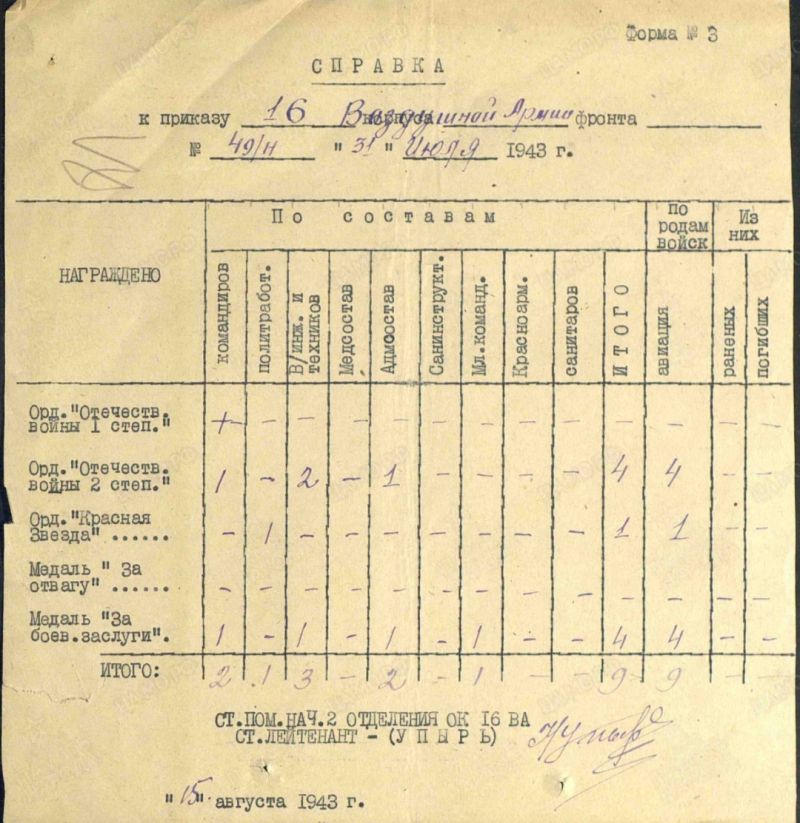 Форма № 3
СПРАВКА
к приказу 16 Воздушной Армии фронта
№ 49/н "31" Июля 1943 г.
НАГРАЖДЕНО
По составам
по родам войск
Из них
командиров
политработ.
В/инж. и техников
Медсостав
Адмсостав
Санинструкт.
Мл.команд.
Красноарм.
санитаров
ИТОГО
авиация
раненых
погибших
Орд."Отечеств. войны 1 степ." + - - - - - - - - - - - -
Орд."Отечеств. войны 2 степ." 1 - 2 - 1 - - - - 4 4 - -
Орд."Красная Звезда" ...... - 1 - - - - - - - 1 1 - -
Медаль " За отвагу" ...... - - - - - - - - - - - - -
Медаль "За боев.заслуги". 1 - 1 - 1 - 1 - - 4 4 - -
ИТОГО: 2 1 3 - 2 - 1 - - 9 9 - -
СТ.ПОМ.НАЧ.2 ОТДЕЛЕНИЯ ОК 16 ВА
СТ.ЛЕЙТЕНАНТ - (УПЫРЬ)
"15" августа 1943 г.